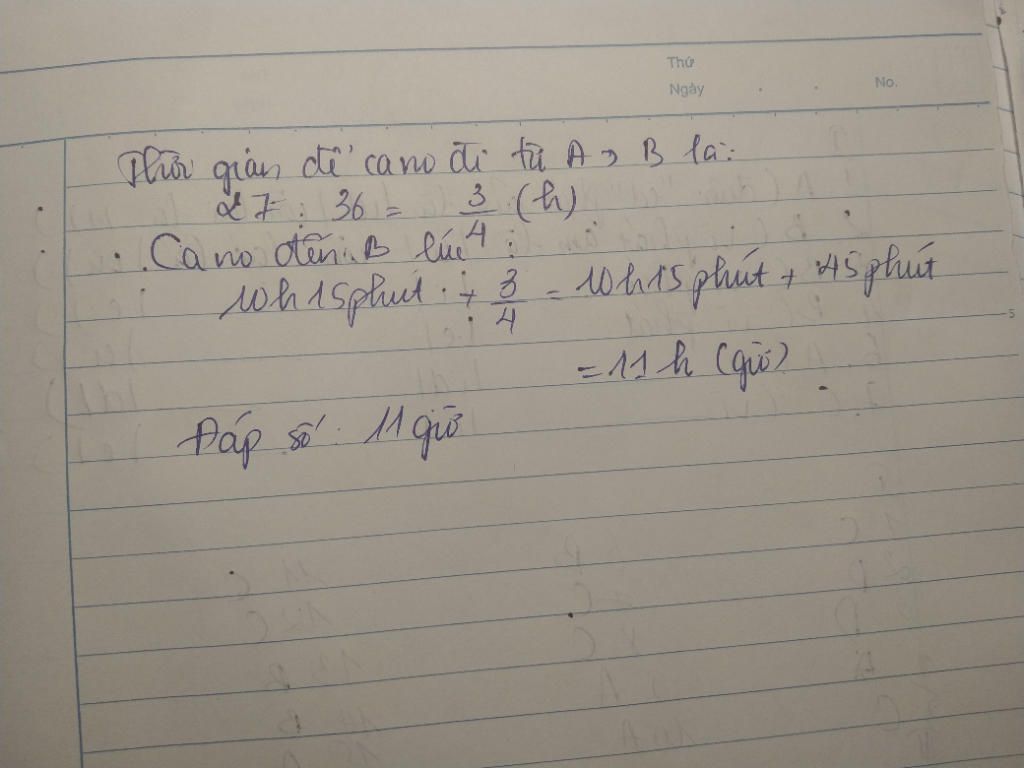 Thứ
Ngày . . No.
Thời gian để cano đi từ A → B là:
27 : 36 = 3/4 (h)
Cano đến B lúc :
10h15phút + 3/4 = 10h15phút + 45phút
= 11h (giờ)
5
Đáp số: 11 giờ